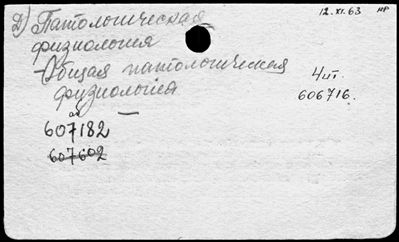 2) Патологическая
12.XI.63 НР
физиология
-Общая патологическая
4 шт.
физиология
606716.
607182 —
607602